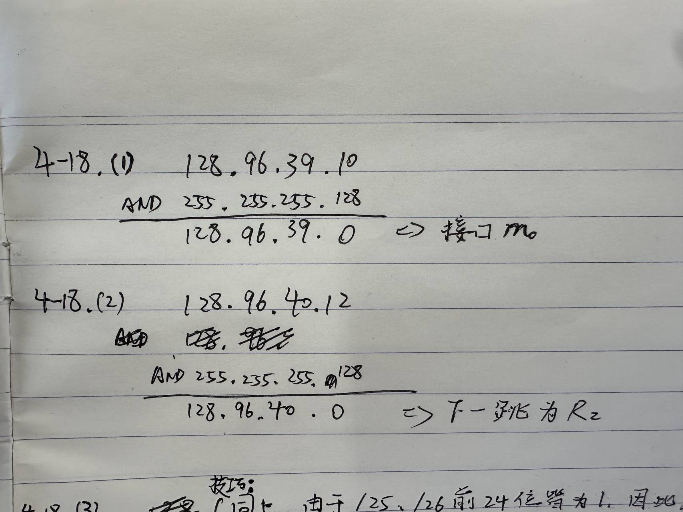 4-18.(1) 128.96.39.10
AND 255.255.255.128
128.96.39.0 => 接口 m₀
4-18.(2) 128.96.40.12
AND 255.255.255.128
128.96.40.0 => 下一跳为 R₂
技巧:
4-18.(3) 由于 /25、/26 前24位皆为1,因此